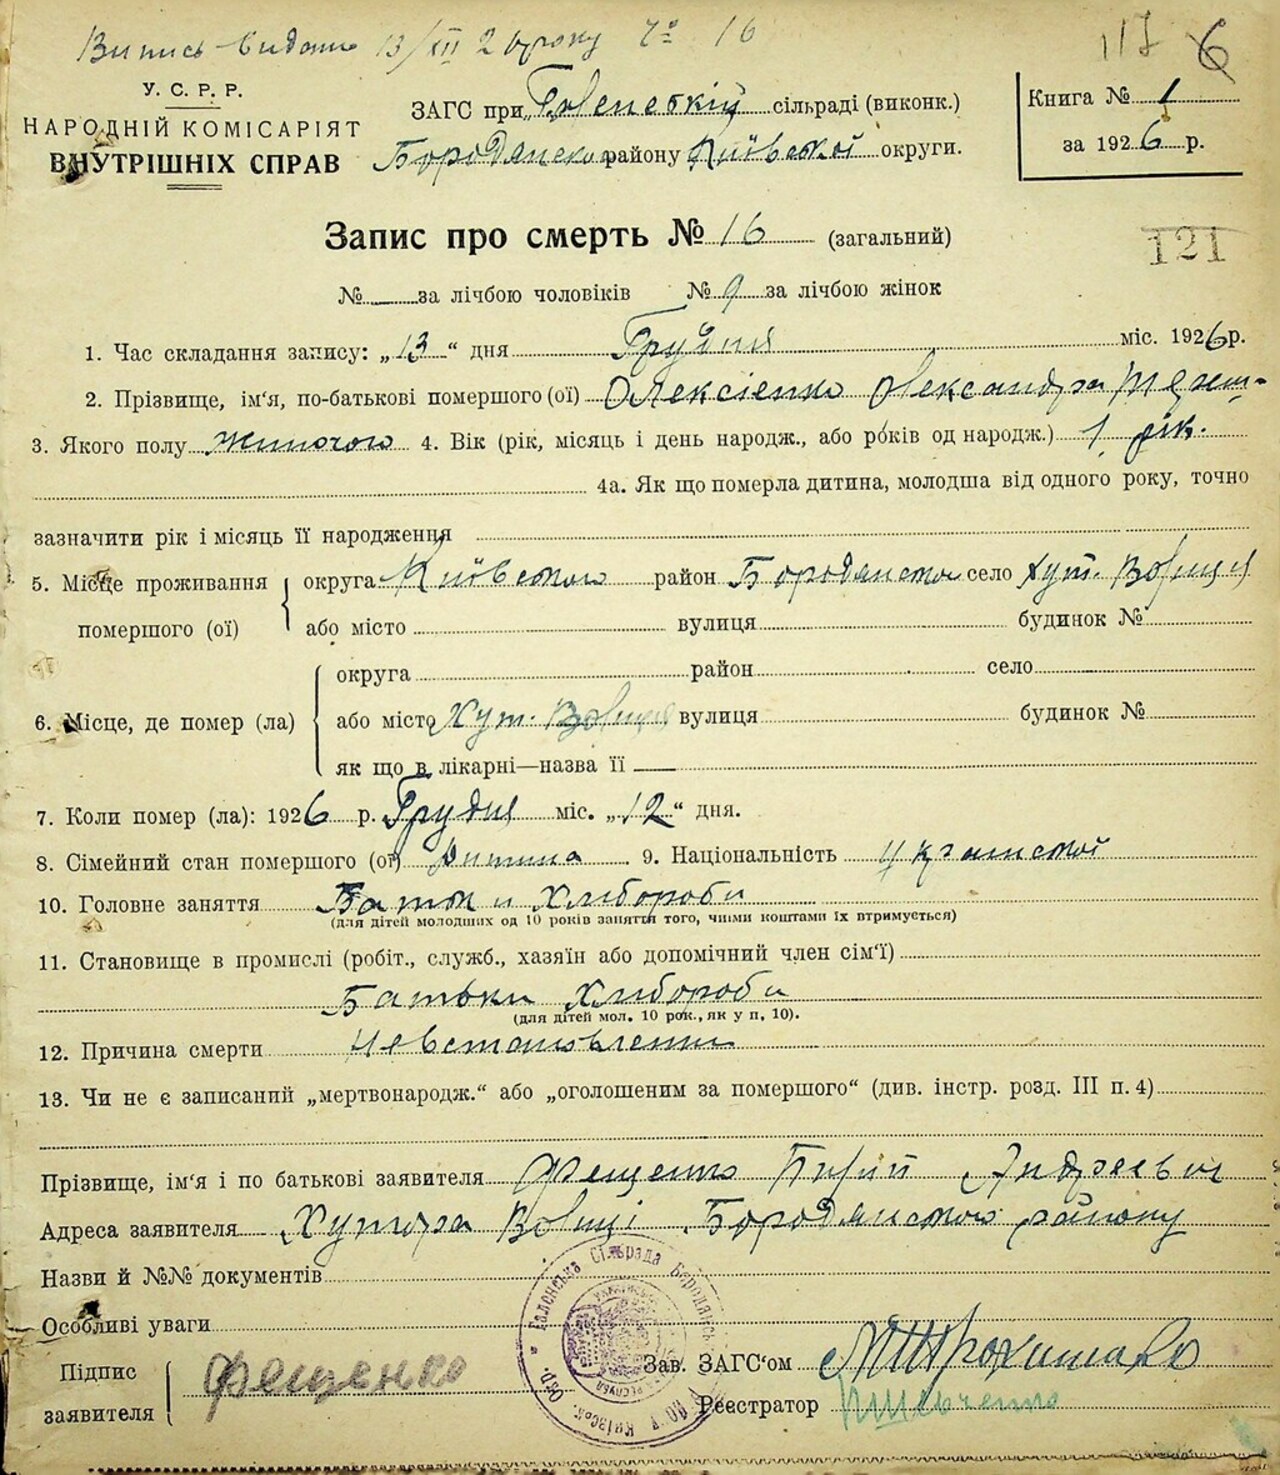 Випись видано 13/XII 26 року № 16
117 6
У. С. Р. Р.
НАРОДНІЙ КОМІСАРІЯТ
ВНУТРІШНІХ СПРАВ
ЗАГС при сільраді (виконк.)
Бородянском району Київської округи.
Книга № 1
за 1926 р.
Запис про смерть № 16 (загальний)
121
№ за лічбою чоловіків № 9 за лічбою жінок
1. Час складання запису: „13“ дня Грудня міс. 1926 р.
2. Прізвище, ім'я, по-батькові помершого (ої) Олексієнко Олександра
3. Якого полу жиночого 4. Вік (рік, місяць і день народж., або років од народж.) 1 рік.
4а. Як що померла дитина, молодша від одного року, точно
зазначити рік і місяць її народження
5. Місце проживання помершого (ої) округа Київського район Бородянского село Хут. Волиця
або місто вулиця будинок №
6. Місце, де помер (ла) округа район село
або місто Хут. Волиця вулиця будинок №
як що в лікарні—назва її
7. Коли помер (ла): 1926 р. Грудня міс. „12“ дня.
8. Сімейний стан помершого (ої) дитина 9. Національність Української
10. Головне заняття Батьки Хлибороби
(для дітей молодших од 10 років заняття того, чиїми коштами їх втримується)
11. Становище в промислі (робіт., служб., хазяїн або допомічний член сім'ї)
Батьки Хлибороби
(для дітей мол. 10 рок., як у п. 10).
12. Причина смерти Невстановлена
13. Чи не є записаний „мертвонародж.“ або „оголошеним за помершого“ (див. інстр. розд. III п. 4)
Прізвище, ім'я і по батькові заявителя Фещенко Андреевич
Адреса заявителя Хутора Волиці Бородянського району
Назви й №№ документів
Особливі уваги
Підпис заявителя Фещенко
Зав. ЗАГС'ом
Реєстратор Шевченко
Сільрада